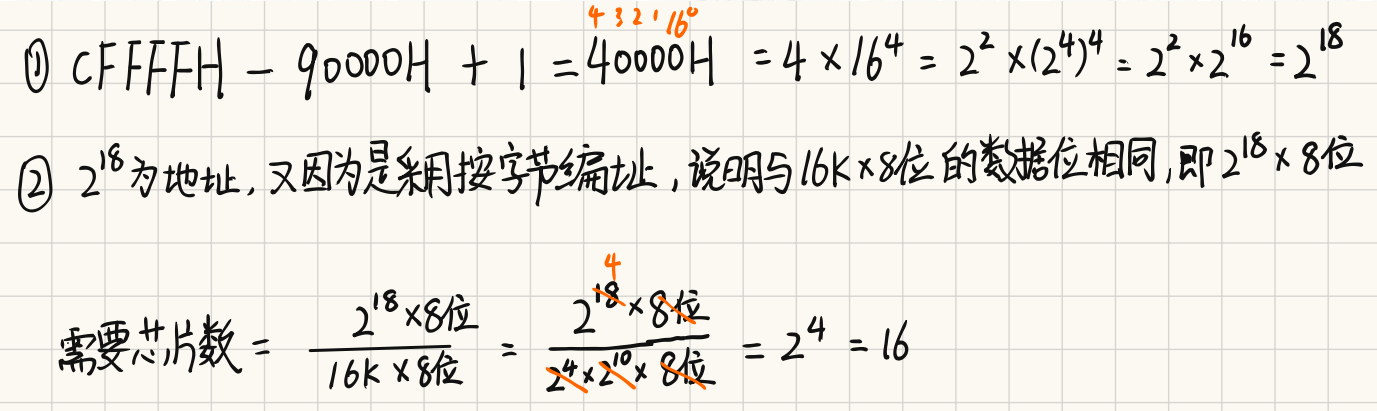 4 3 2 1 16⁰
① CFFFFH - 90000H + 1 = 40000H = 4 × 16⁴ = 2² × (2⁴)⁴ = 2² × 2¹⁶ = 2¹⁸
② 2¹⁸为地址, 又因为是采用按字节编址, 说明与16K×8位的数据位相同, 即2¹⁸×8位
4
需要芯片数 = 2¹⁸×8位 / 16K×8位 = 2¹⁸×8位 / 2⁴×2¹⁰×8位 = 2⁴ = 16